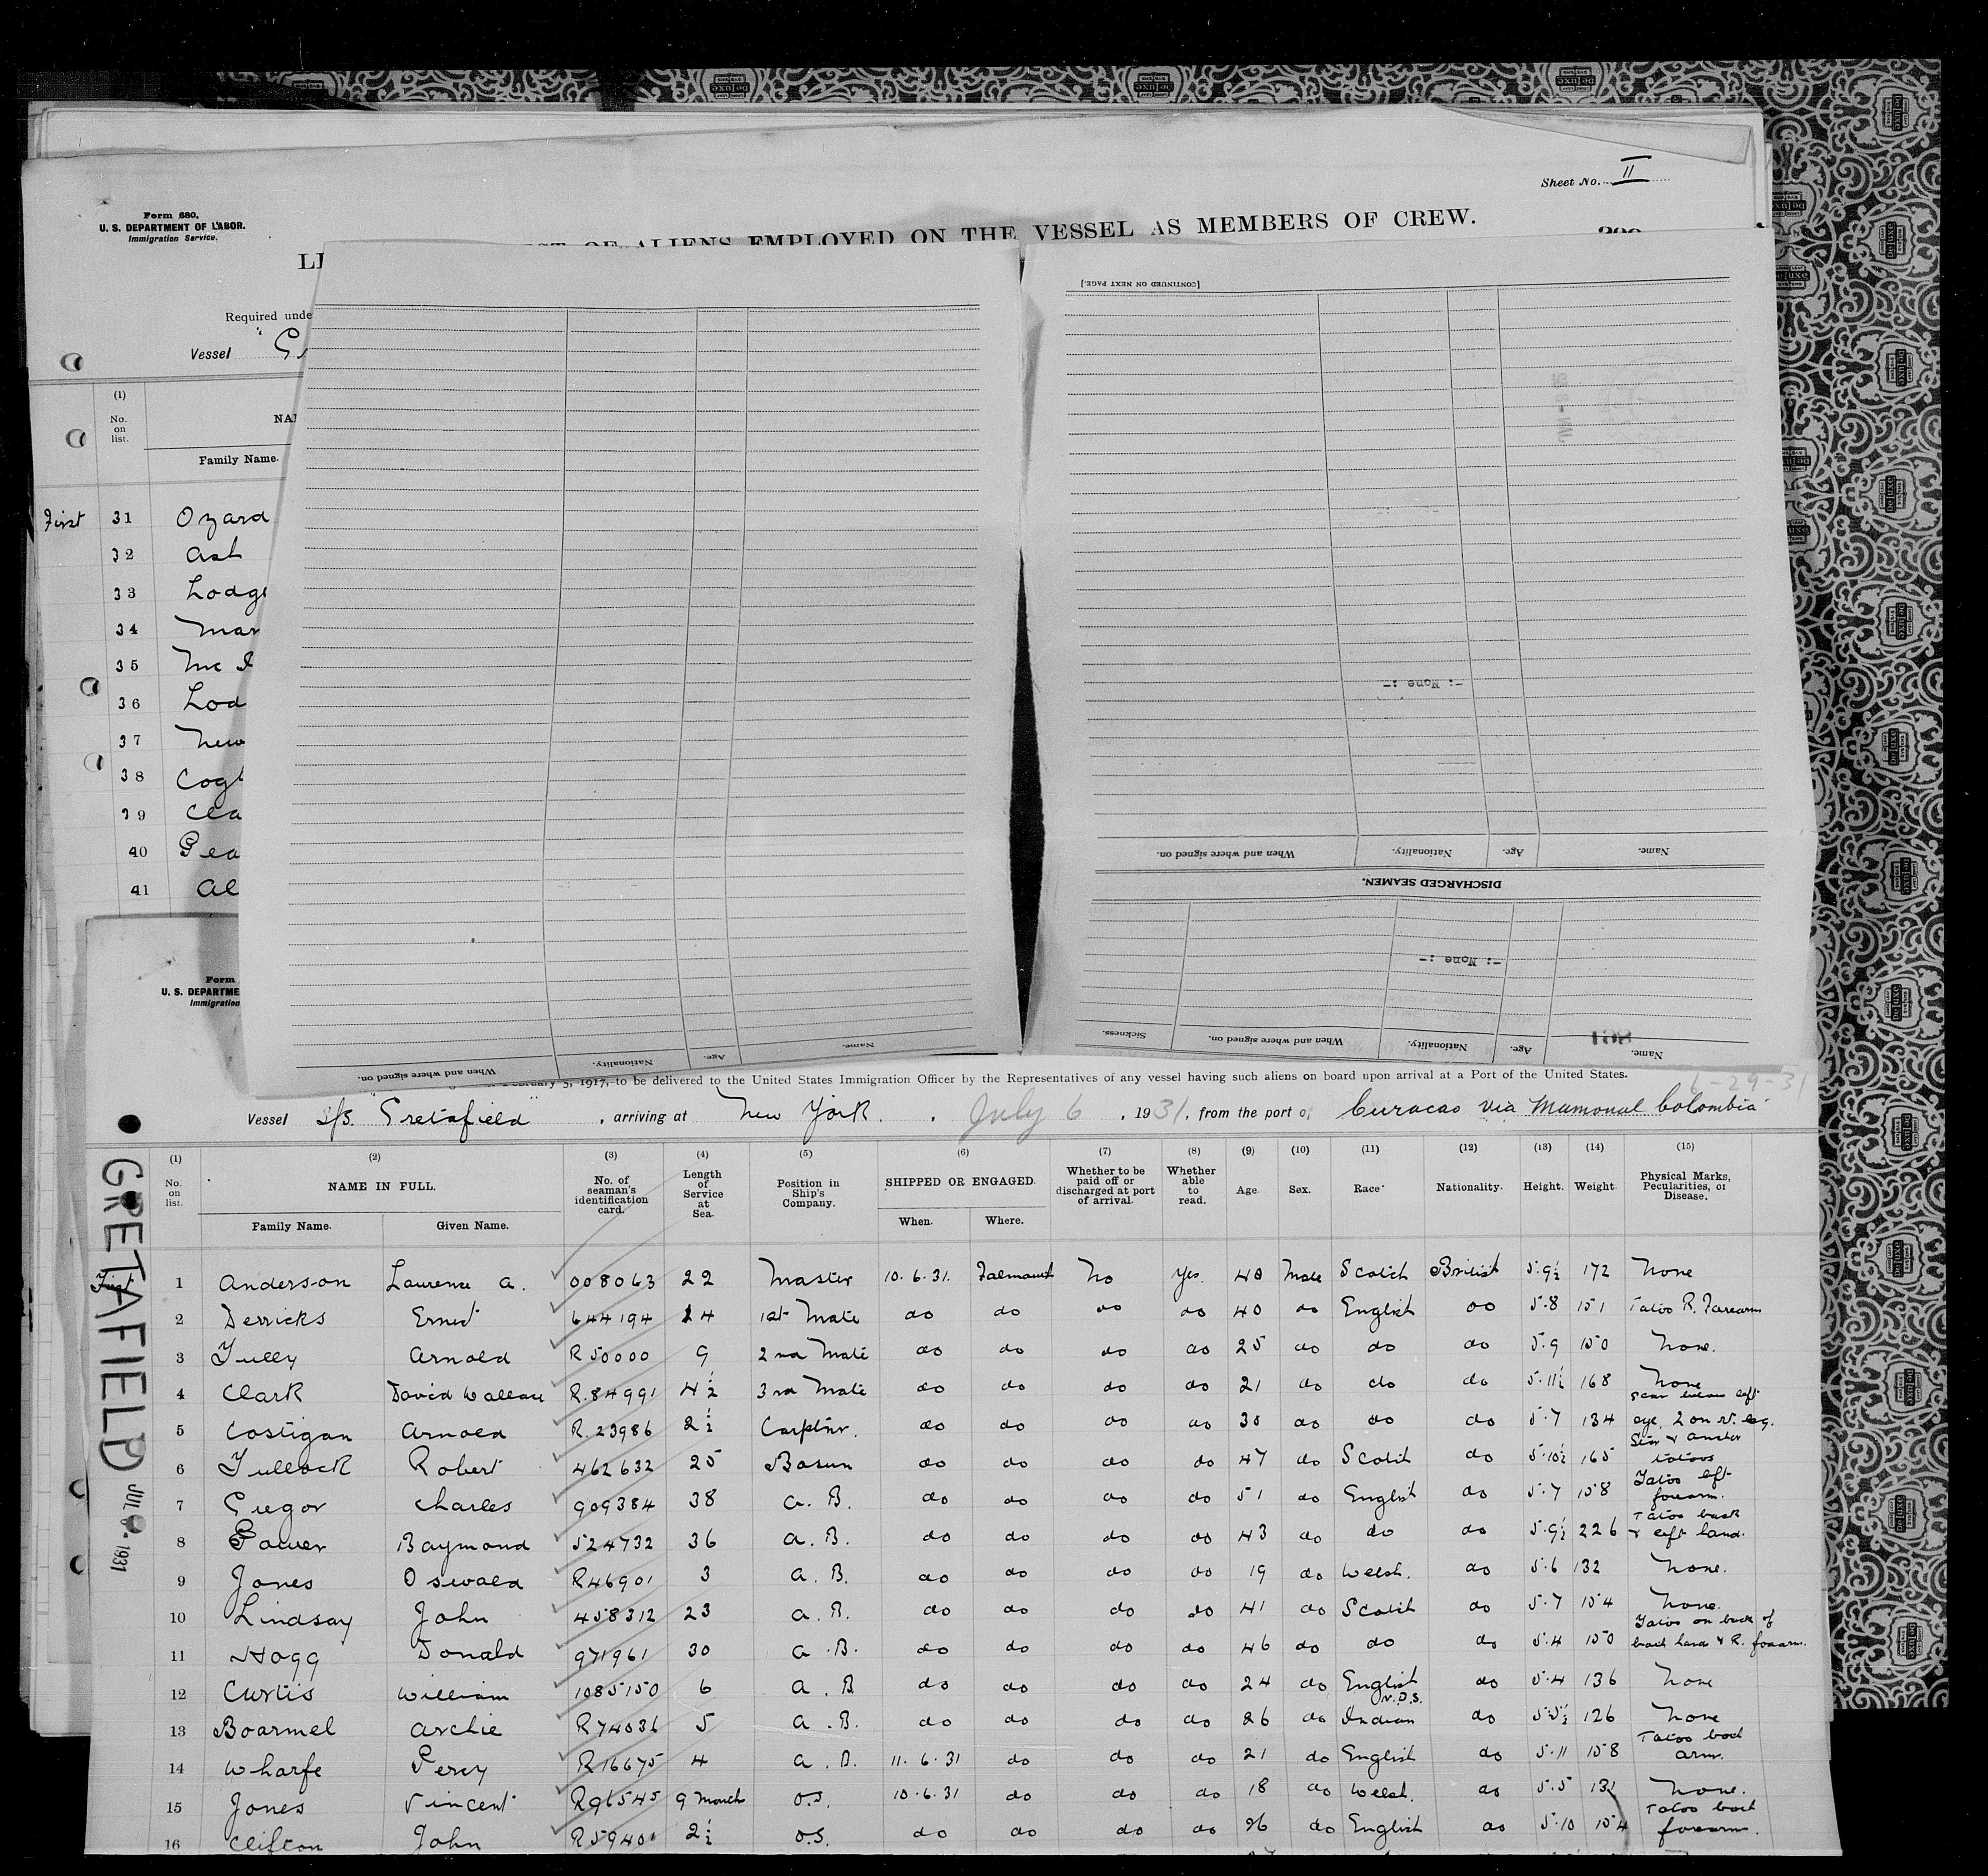 Sheet No. II
Form 680,
U. S. DEPARTMENT OF LABOR.
Immigration Service.
OF ALIENS EMPLOYED ON THE VESSEL AS MEMBERS OF CREW.
LI
Required unde
Vessel
(1)
No. on list.
Family Name.
First 31 Ozard
32 Ash
33 Lodg
34 Mar
35 Mc
36 Lod
37 New
38 Cog
39 Cla
40 Pea
41 Al
[CONTINUED ON NEXT PAGE.]
-: None :-
When and where signed on. Nationality. Age. Name.
DISCHARGED SEAMEN.
-: None :-
Sickness. When and where signed on. Nationality. Age. Name.
When and where signed on. Nationality. Age. Name.
Form
U. S. DEPARTME
Immigration
5, 1917, to be delivered to the United States Immigration Officer by the Representatives of any vessel having such aliens on board upon arrival at a Port of the United States.
6-29-31
Vessel S/S. "Gretafield", arriving at New York. July 6, 1931, from the port of Curacao via Mamonal Colombia
GRETAFIELD JUL 1931
(1) (2) (3) (4) (5) (6) (7) (8) (9) (10) (11) (12) (13) (14) (15)
No. on list. NAME IN FULL. No. of seaman's identification card. Length of Service at Sea. Position in Ship's Company. SHIPPED OR ENGAGED. Whether to be paid off or discharged at port of arrival. Whether able to read. Age. Sex. Race. Nationality. Height. Weight. Physical Marks, Pecularities, or Disease.
Family Name. Given Name. When. Where.
First 1 Anderson Laurence A. 008063 22 Master 10.6.31. Falmouth No Yes 40 Male Scotch British 5.9½ 172 None
2 Derricks Ernest 644194 24 1st Mate do do do do 40 do English do 5.8 151 Tatoo R. Forearm
3 Tully Arnold R50000 9 2nd Mate do do do do 25 do do do 5.9 150 None.
4 Clark David Wallace R.84991 4½ 3rd Mate do do do do 21 do do do 5.11½ 168 None
5 Costigan Arnold R.23986 2½ Carpttnr. do do do do 30 do do do 5.7 134 Scar below left eye, 2 on rt. leg.
6 Tullock Robert 462632 25 Bosun do do do do 47 do Scotch do 5.10½ 165 Star & anchor tatoos
7 Gregor Charles 909384 38 A.B. do do do do 51 do English do 5.7 158 Tatoo left forearm.
8 Power Raymond 524732 36 A.B. do do do do 43 do do do 5.9½ 226 Tatoo back & left hand.
9 Jones Oswald R46901 3 A.B. do do do do 19 do Welsh. do 5.6 132 None.
10 Lindsay John 458312 23 A.B. do do do do 41 do Scotch do 5.7 154 None.
11 Hogg Donald 971961 30 A.B. do do do do 46 do do do 5.4 150 Tatoo on back of hand & R. forearm.
12 Curtis William 1085150 6 A.B do do do do 24 do English do 5.4 136 None
13 Boarmel Archie R74036 5 A.B. do do do do 26 do Indian do 5.5½ 126 None
14 Wharfe Percy R16675 4 A.B. 11.6.31 do do do 21 do English do 5.11 158 Tatoo both arm.
15 Jones Vincent R96545 9 month O.S. 10.6.31 do do do 18 do Welsh. do 5.5 131 None.
16 Clifton John R59401 2½ O.S. do do do do 26 do English do 5.10 154 Tatoo both forearm.